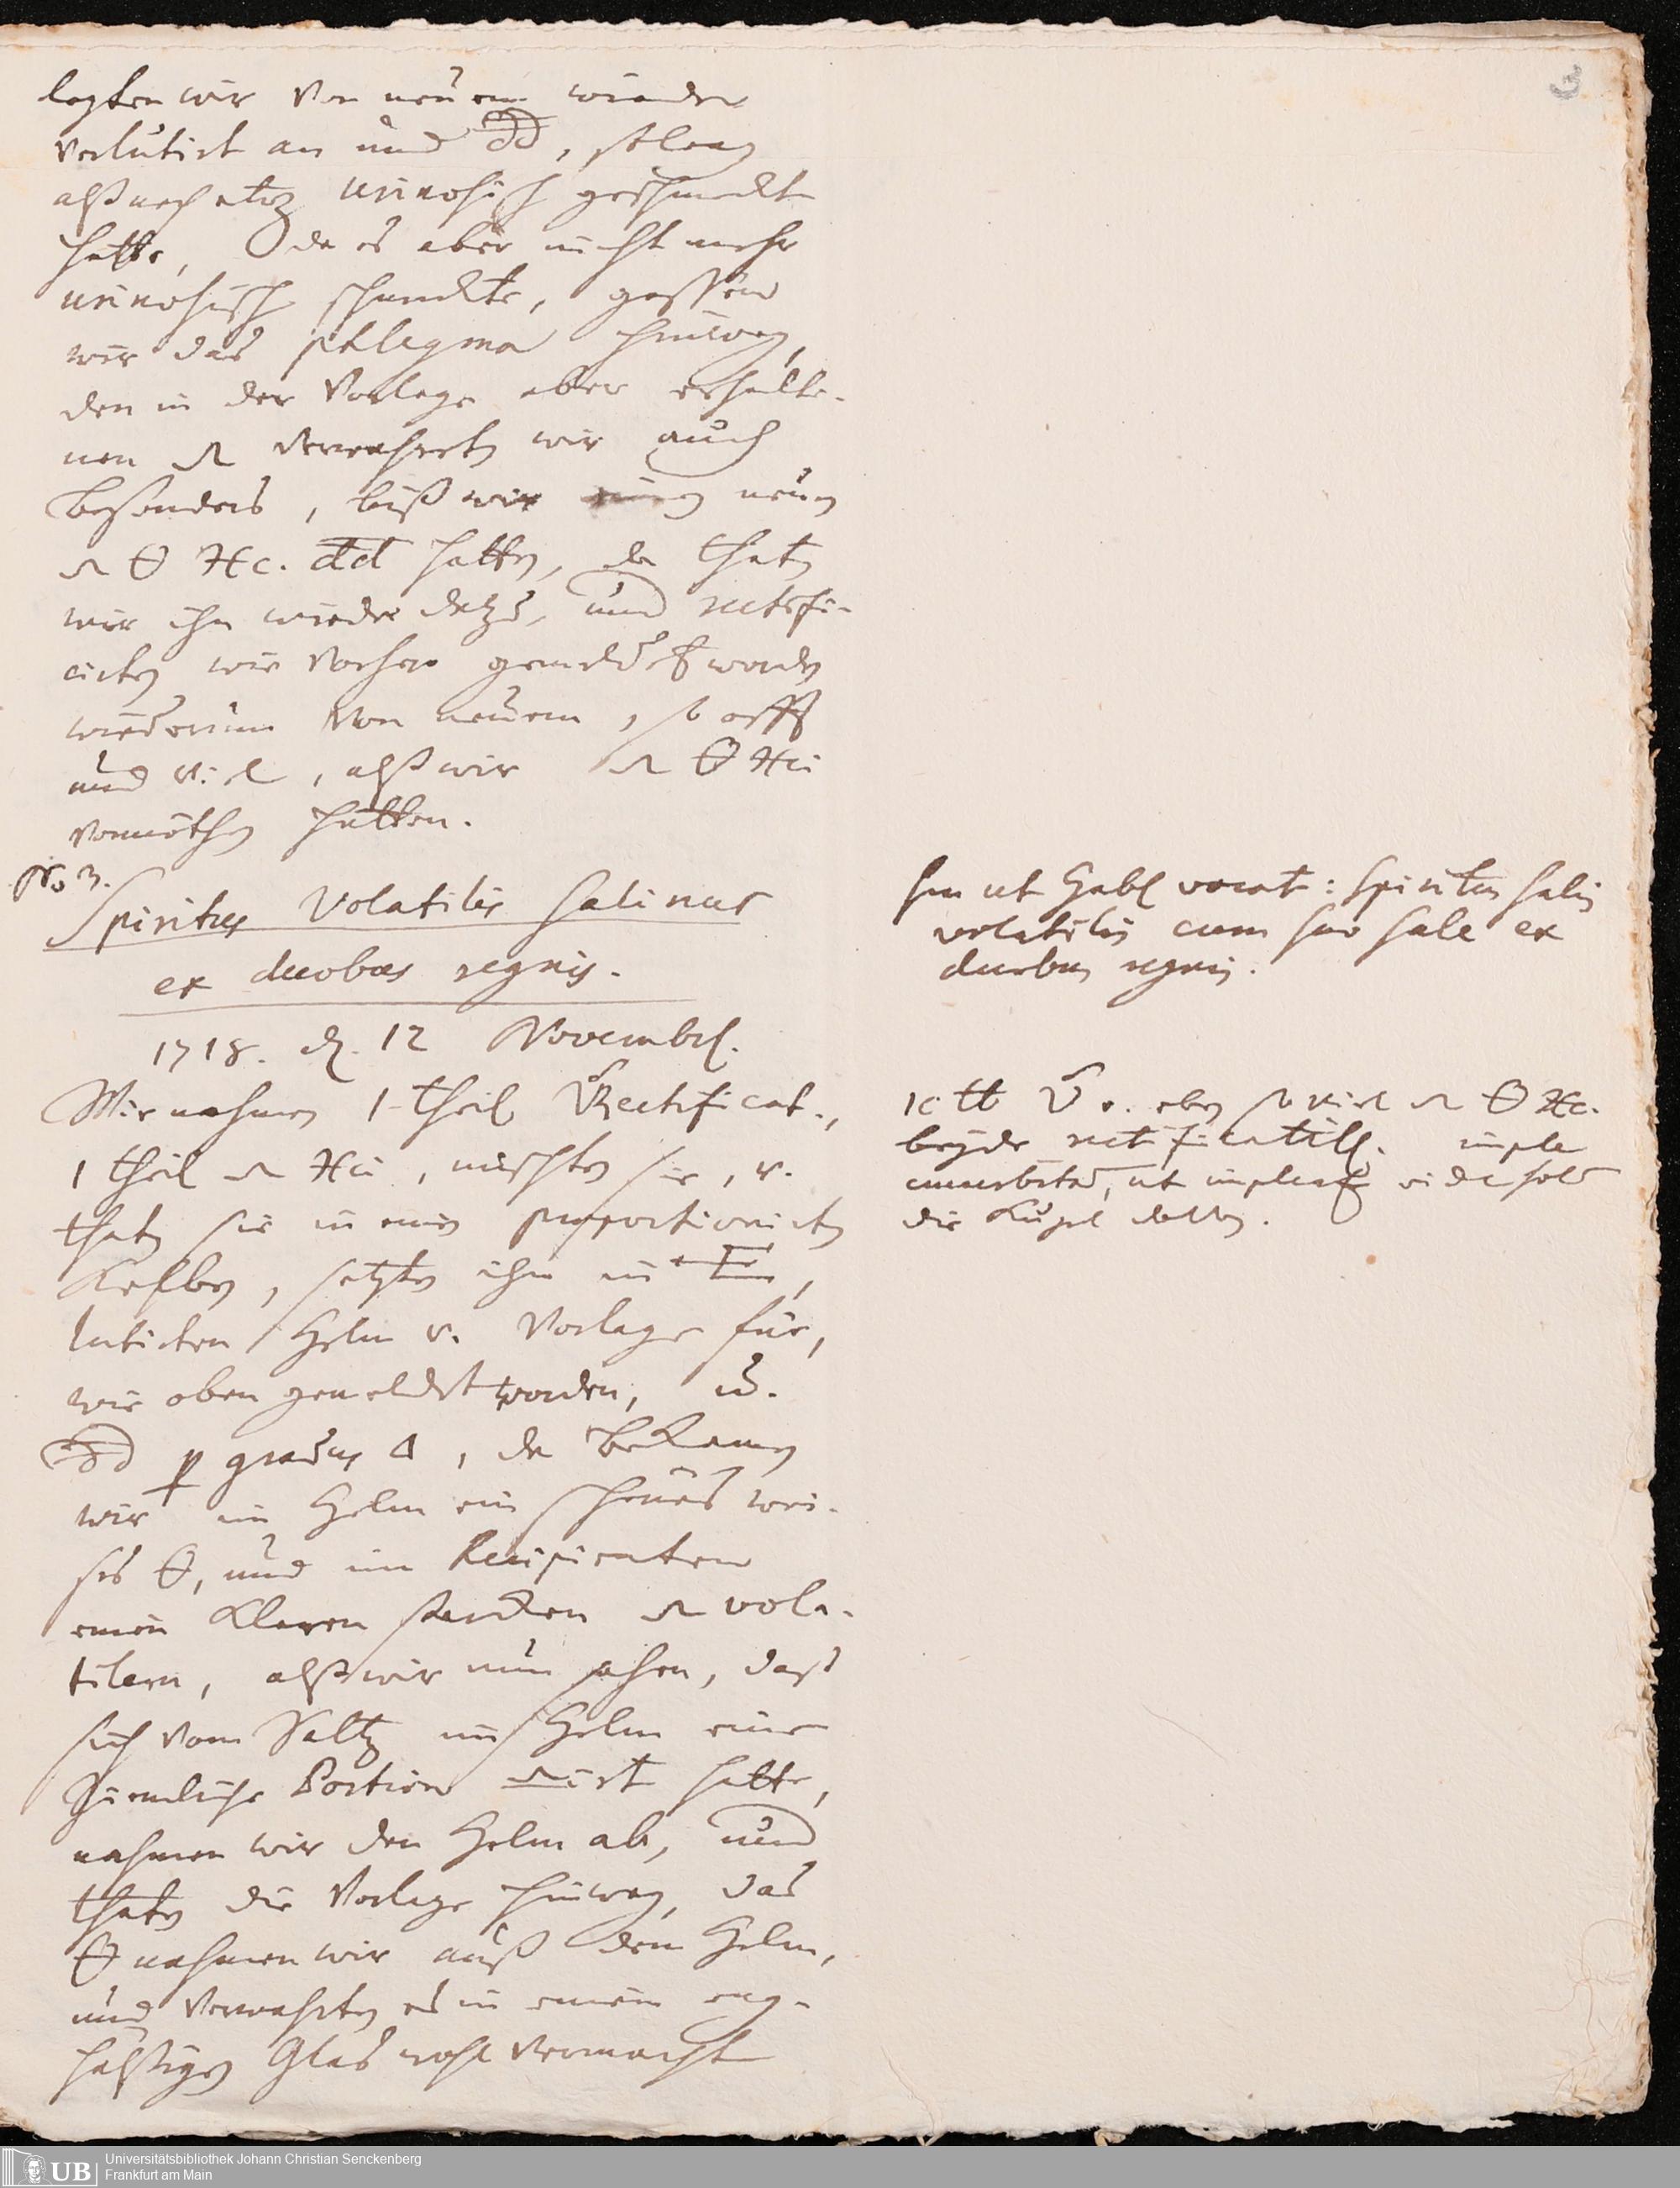 3
legten wir von neuem wieder
verlutirt an und dd, so lang
alß nach etwz urinosisch geschmeckt
hatte, da es aber nicht mehr
urinosisch schmeckte, gossen
wir das phlegma hinweg,
den in der Vorlage aber erhalte-
nen verwahrten wir auch
besonders, biß wir neuen
🜔 ✶ci. dd hatten, da thaten
wir ihn wieder datzu, und rectifi-
cirten wie vorher gemeldet worden
wiederum von neuem, so offt
und viel, alß wir 🜔 ✶ci
vonnöthen hatten.
No 3.
Spiritus Volatilis salinus
ex duobus regnis.
1718. d. 12 Novembr.
Wir nahmen 1 theil Rectificat.,
1 theil ✶ci, mischten sie, u.
thaten sie in einen proportionirten
Kolben, setzten ihn in
lutirten Helm u. Vorlage für,
wie oben gemeldet worden, u.
dd p gradus 🜂, da bekamen
wir im Helm ein schönes wei-
ses 🜔, und im Recipienten
einen klaren starcken vola-
tilem, alß wir nun sahen, daß
sich vom Saltz im Helm eine
ziemliche Portion irt hatte,
nahmen wir den Helm ab, und
thaten die Vorlage hinweg, das
🜔 nahmen wir auß dem Helm,
und verwahrten es in einem eng-
halsigen Glas wohl vermacht
seu ut Gabl vocat: Spiritus salis
volatilis cum suo sale ex
duobus regnis.
eben so viel 🜔 ✶ci.
beyde rectificatiss. imple
cucurbitam, ut impleat
die Kugel
Universitätsbibliothek Johann Christian Senckenberg
Frankfurt am Main
UB